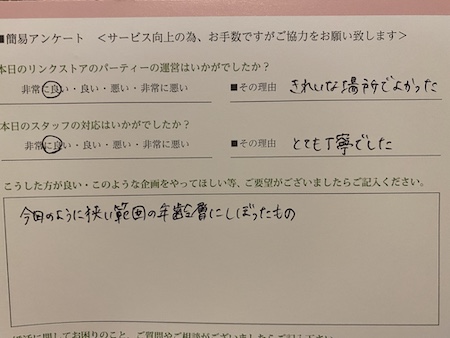 ■簡易アンケート <サービス向上の為、お手数ですがご協力をお願い致します>
本日のリンクストアのパーティーの運営はいかがでしたか？
非常に良い・良い・悪い・非常に悪い ■その理由 きれいな場所でよかった
本日のスタッフの対応はいかがでしたか？
非常に良い・良い・悪い・非常に悪い ■その理由 とても丁寧でした
こうした方が良い・このような企画をやってほしい等、ご要望がございましたらご記入ください。
今回のように狭い範囲の年齢層にしぼったもの
婚活に関してお困りのこと、ご質問やご相談がございましたらご記入下さい